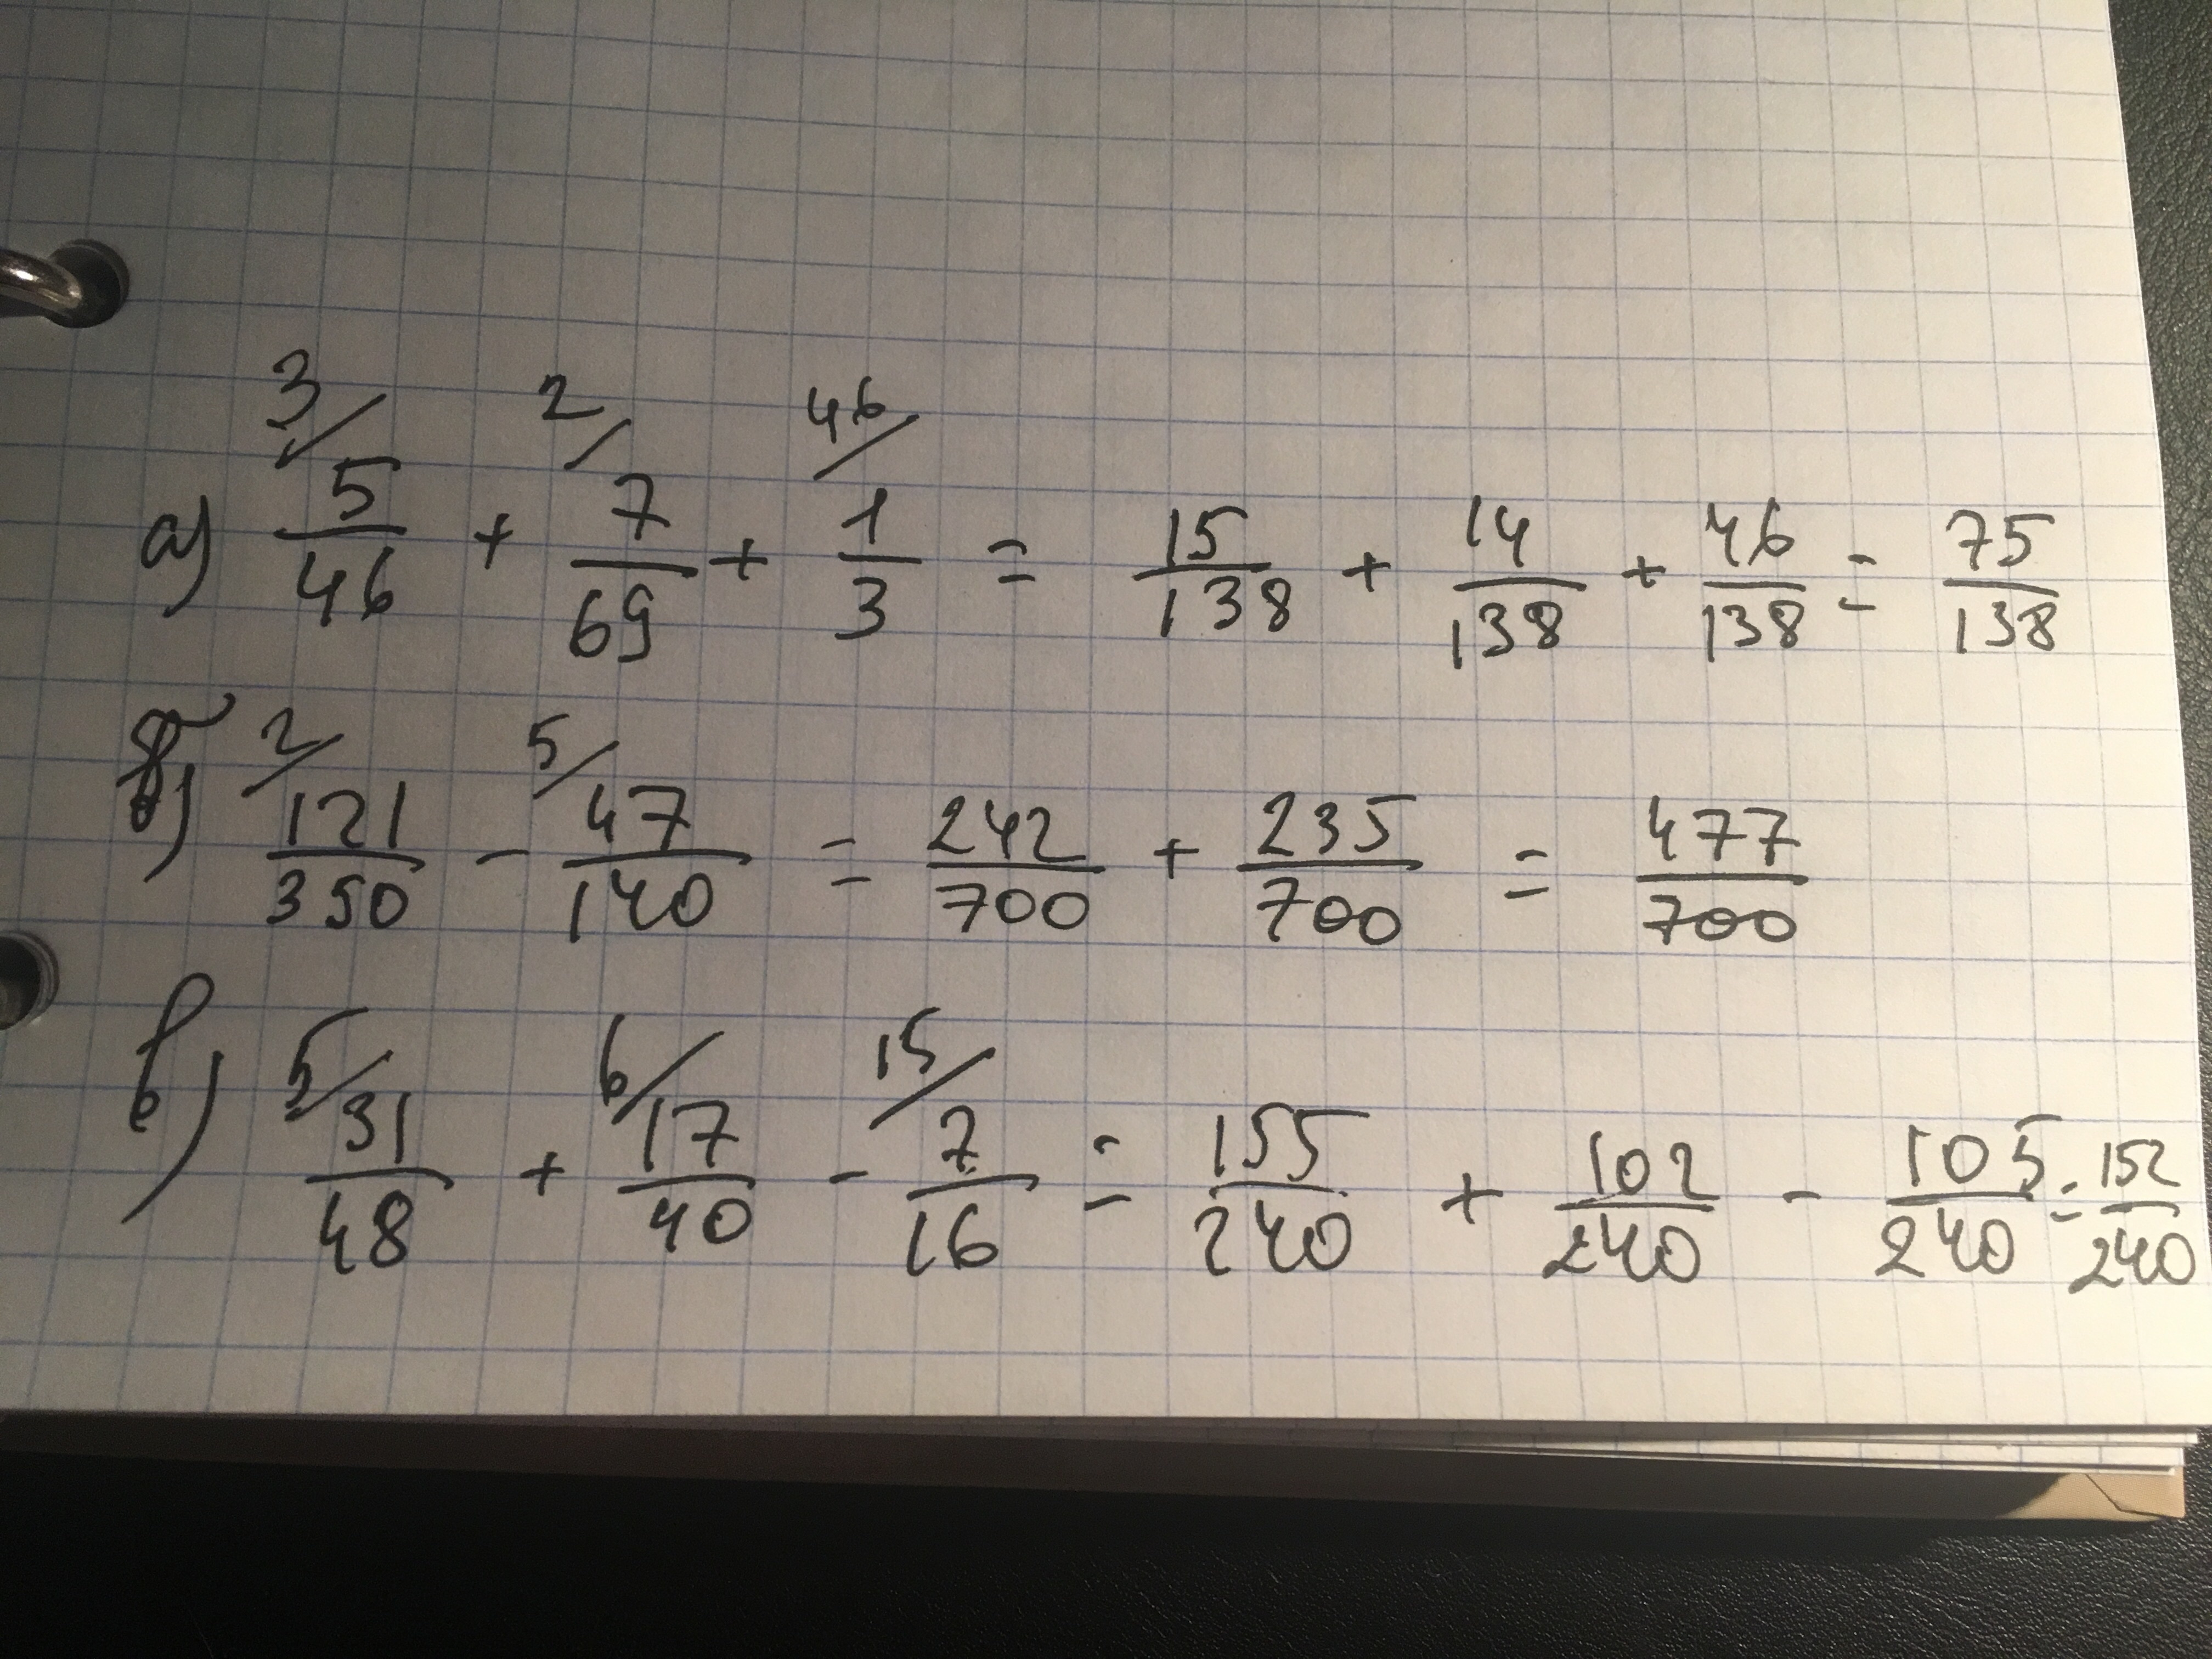 а) 3/ 5/46 + 2/ 7/69 + 46/ 1/3 = 15/138 + 14/138 + 46/138 = 75/138
б) 2/ 121/350 - 5/ 47/140 = 242/700 + 235/700 = 477/700
в) 5/ 31/48 + 6/ 17/40 - 15/ 7/16 = 155/240 + 102/240 - 105/240 = 152/240